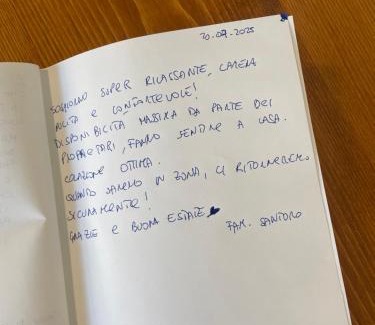 30.07.2025
SOGGIORNO SUPER RILASSANTE, CAMERA
PULITA E CONFORTEVOLE!
DISPONIBILITÀ MASSIMA DA PARTE DEI
PROPRIETARI, FANNO SENTIRE A CASA.
COLAZIONE OTTIMA.
QUANDO SAREMO IN ZONA, CI RITORNEREMO
SICURAMENTE!
GRAZIE E BUONA ESTATE
FAM. SANTORO